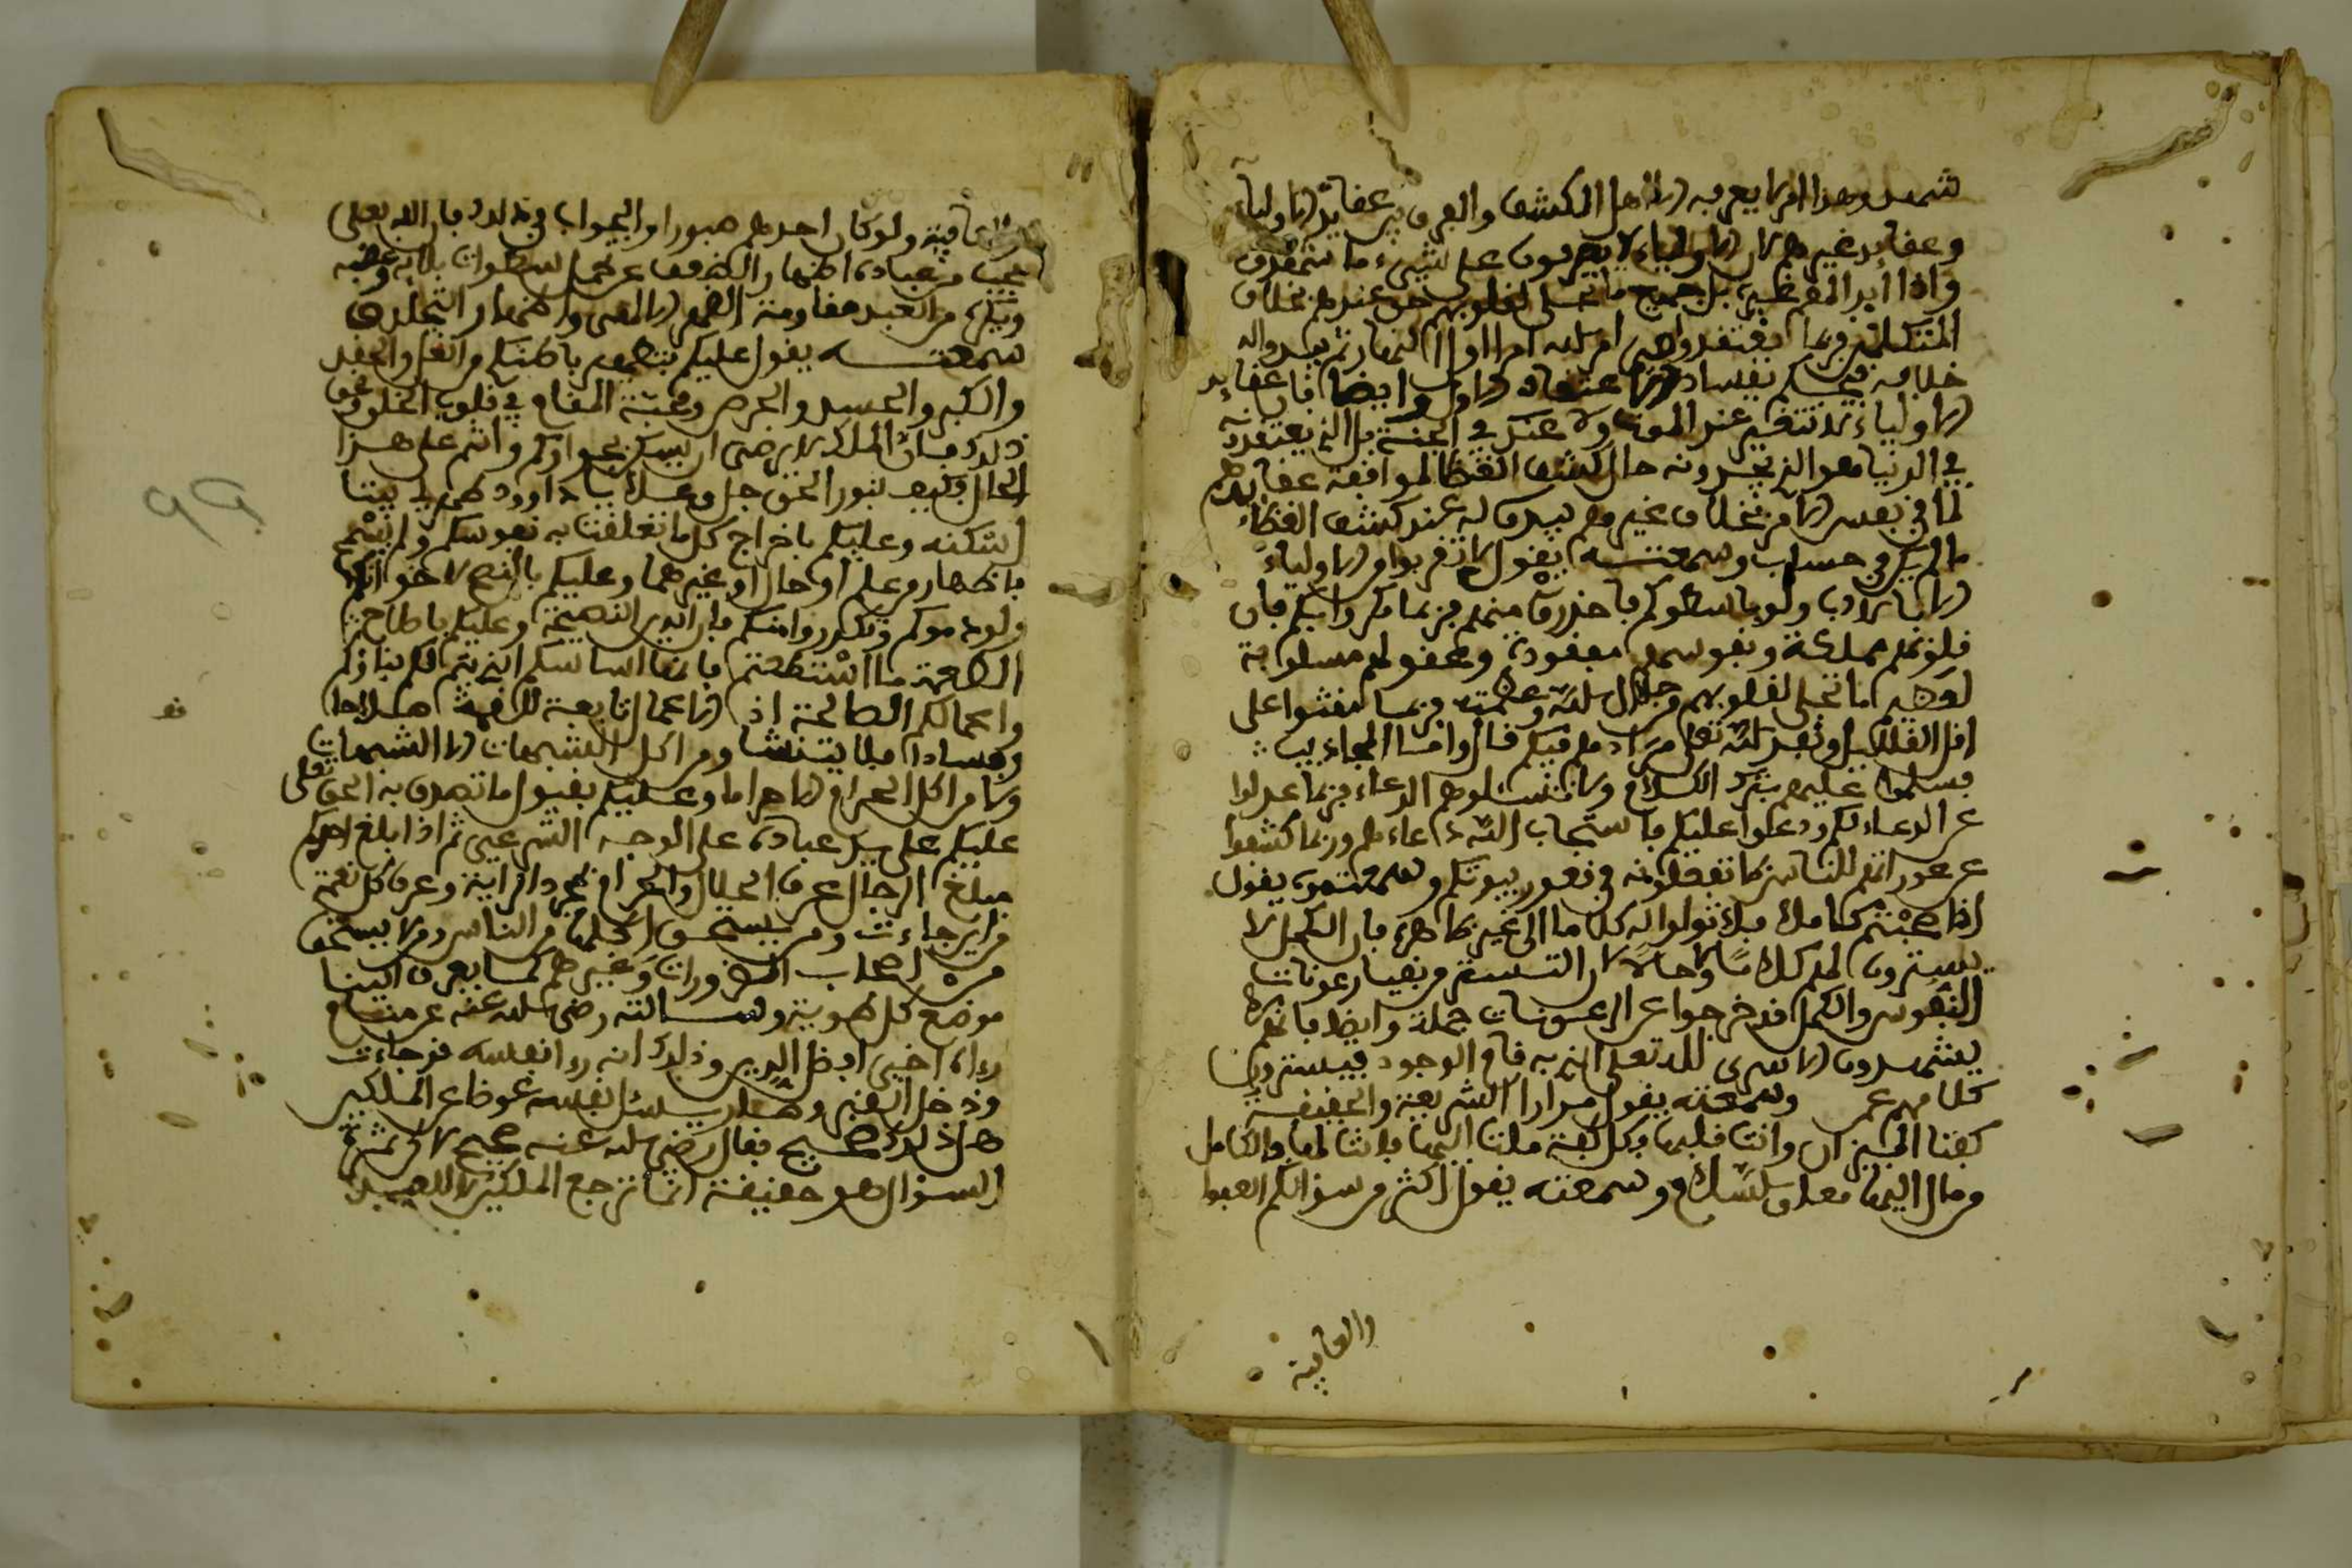 شهد وهذا امر لا يعرفه الا اهل الكشف والفرق بين عقايد الاولياء
وعقايد غيرهم ان الاولياء لا يعرفون على شيء ما
واذا ابدا بل جميع ما تجلى لقلوبهم حق عندهم بخلاف
المتكلمين فربما اعتقدوا في امر الله امرا اول النهار ثم يبدوا له
خلافه فيحكم بفساد الاعتقاد الاول وايضا فان عقايد
الاولياء لا تتغير عند الموت ولا عند في الجنة بل الذي يعتقدونه
في الدنيا هو الذي يجدونه حال كشف الغطا لموافقة عقايدهم
لما في نفس الامر بخلاف غيرهم يبدوا له عند كشف الغطاء
ما لم يكن في حساب وسمعته يقول لا تقربوا من الاولياء
الا بالادب ولو باسطوكم فاحذروا منهم فربما مكروا بكم فان
قلوبهم مملكة ونفوسهم مفقودة وعقولهم مسلوبة
لقوة ما تجلى لقلوبهم من جلال الله وعظمته فربما مقتوا على
اقل القليل ونفذ الله تعلى مرادهم فيكم قال واما المجاذيب
فسلموا عليهم بترك السلام ولا تسئلوهم الدعاء فربما عدلوا
عن الدعاء لكم ودعوا عليكم فاستجاب الله دعاءهم وربما كشفوا
عن عوراتكم للناس بما تفعلونه في قعور بيوتكم وسمعته يقول
اذا صحبتم كاملا فلا تولوا له كلاما الى غير ظاهره فان الكمل لا
يسترون لهم كلاما ولا حالا لان التستر من بقيا رعونات
النفوس والكمل قد خرجوا عن الرعونات جملة وايضا فانهم
يشهدون الاسرى لله تعلى الذي به قام الوجود فيسترون
كلامهم عمن وسمعته يقول مرارا الشريعة والحقيقة
كفتا الميزان وانت قلبها فكل كفة ملت اليها فانت لها والكامل
من مال اليهما معا والسلام وسمعته يقول اكثروا من سؤالكم العفوا
والعافية
والعافية ولو كان احدكم صبورا والجواب في ذلك فان الله تعلى
يحب من عباده اظهار الضعف عن تحمل سطوات بلائه وغضبه
ويكره من العبد مقاومة القهر الالهي واظهار التجلد
سمعته يقول عليكم بتطهير باطنكم من الغل والحقد
والكبر والحسد والحرص ومحبة المقام في قلوب الخلق ونحو
ذلك فان الملك لا يرضى ان يسكن بجواركم وانتم على هذا
الحال فكيف بنور الحق جل وعلا يا داوود طهر لي بيتا
اسكنه وعليكم باخراج كل ما تعلقت به نفوسكم ولم تسمح
باظهاره من علم او حال او غيرهما وعليكم بالنصح لاخوانكم
ولو ذموكم وتكدروا منكم فان الدين النصيحة وعليكم باصلاح
الطعمة ما استطعتم فانها اساسكم الذي يتم لكم بناؤكم
واعمالكم الصالحة اذ الاعمال تابعة للقمة صلاحا
وفسادا فلا يتنشا ومن اكل الشبهات الا الشبهات
ولا من اكل الحرام الا حراما وعليكم بقبول ما تصدق به الحق تعلى
عليكم على يد عباده على الوجه الشرعي ثم اذا بلغ احدكم
مبلغ الرجال عرف الحلال والحرام بمجرد الراية وعرف كل لقمة
من اين جاءت ومن يستحق اكلها من الناس ومن لا يستحق
من اصحاب الضرورات وغيرهم كما يعرف البنا
موضع كل طوبة وسالته رضي الله عنه عن منام
رءاه اخي افضل الدين وذلك انه رءا نفسه قد جاءت
ودخل القبر وصار يسئل نفسه عوضا عن الملكين
هل ذلك صحيح فقال رضي الله عنه صحيح لان ثمرة
السؤال هو حقيقة انما ترجع الملكين لا للعبد
٩٩